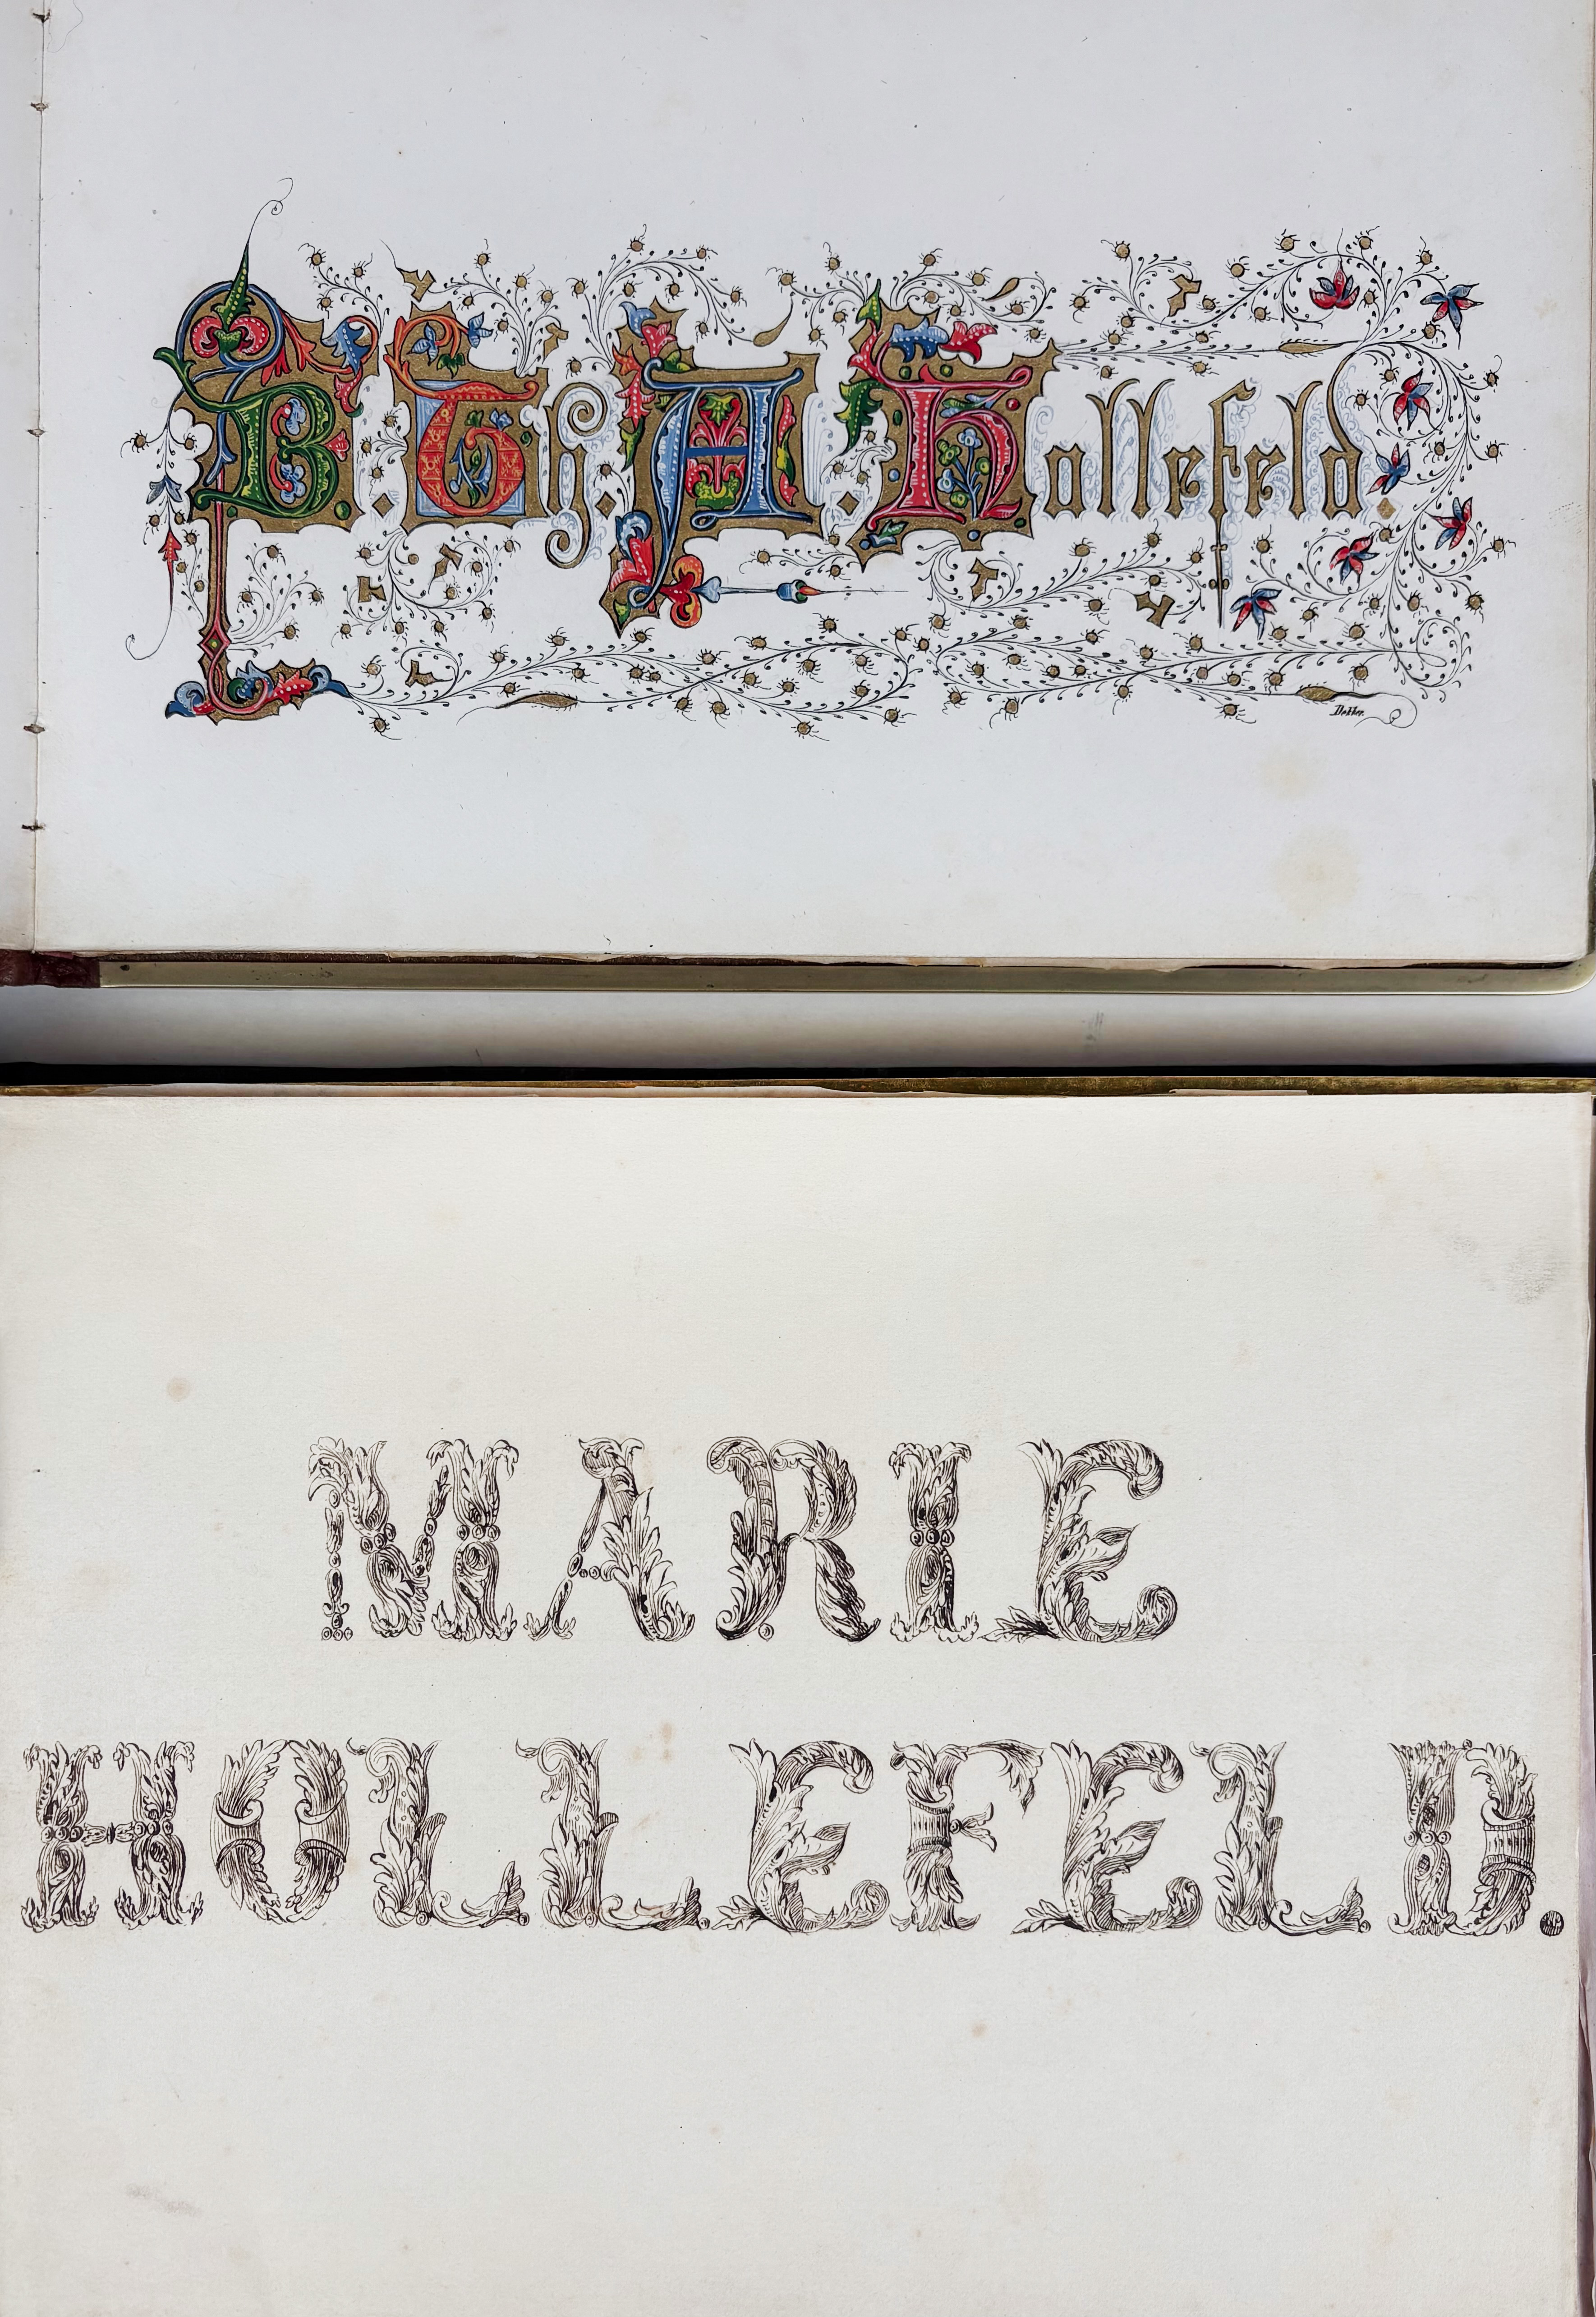 B. Th. A. Hollefeld.
Dekker.
MARIE
HOLLEFELD.